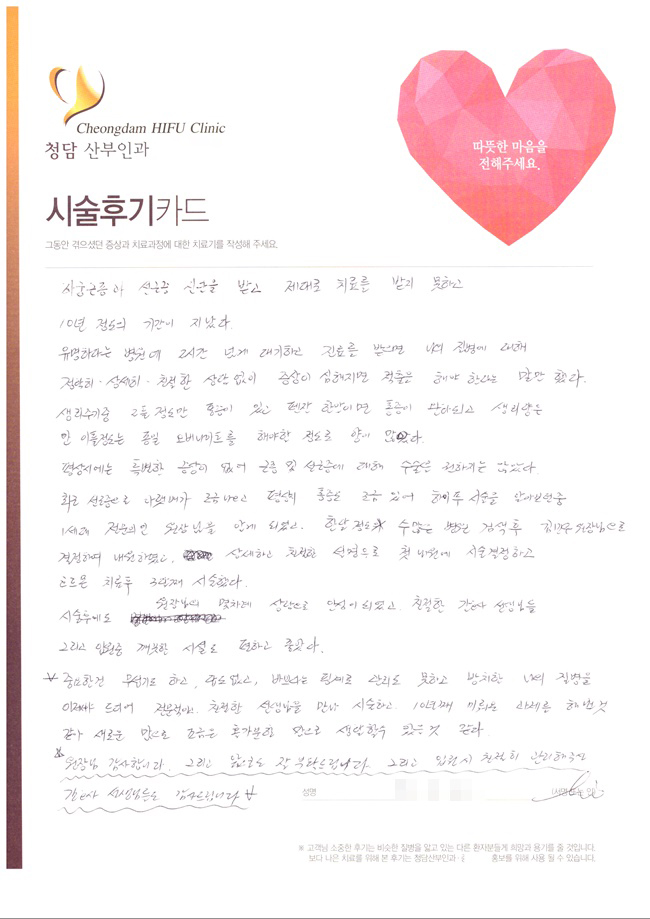 Cheongdam HIFU Clinic
청담 산부인과
따뜻한 마음을
전해주세요.
시술후기카드
그동안 겪으셨던 증상과 치료과정에 대한 치료기를 작성해 주세요.
자궁근종과 선근증 진단을 받고 제대로 치료를 받지 못하고
10년 정도의 기간이 지났다.
유명하다는 병원에 2시간 넘게 대기하고 진료를 받으면 나의 질병에 대해
정확히·상세히·친절한 상담 없이 증상이 심해지면 적출을 해야 한다는 말만 했다.
생리주기중 2틀 정도만 통증이 있고 진통제 한알이면 통증이 완화되고 생리양은
한 이틀정도는 종일 오버나이트를 해야할 정도로 양이 많았다.
평상시에는 특별한 증상이 없어 근종 및 선근증에 대해 수술은 원하지는 않았다
선근증으로 아랫배가 조금 나오고 평상시 통증도 조금 있어 하이푸 시술을 알아보던중
1세대 전문의인 원장님을 알게 되었고, 수많은 병원 검색후 원장님으로
결정하여 내원하였고, 상세하고 친절한 설명으로 첫 내원에 시술결정하고
치료후 시술했다.
시술후에도 원장님의 몇차례 상담으로 안심이 되었고, 친절한 간호사 선생님들
그리고 입원중 깨끗한 시설도 편하고 좋았다.
중요한건 무섭기도 하고, 없고, 바쁘다는 핑계로 관리도 못하고 방치한 나의 질병을
이제야 드디어 친절한 선생님을 만나 시술하고, 10년째 미뤄둔 과제를 해낸것
같아 새로운 맘으로 조금은 홀가분한 맘으로 생활할수 있는것 같다.
원장님 감사합니다. 그리고 앞으로도 잘 부탁드립니다. 그리고 입원시 친절히 관리해주신
간호사 선생님들도 감사드립니다
성명
※ 고객님 소중한 후기는 비슷한 질병을 앓고 있는 다른 환자분들게 희망과 용기를 줄 것입니다.
보다 나은 치료를 위해 본 후기는 청담산부인과 홍보를 위해 사용 될 수 있습니다.